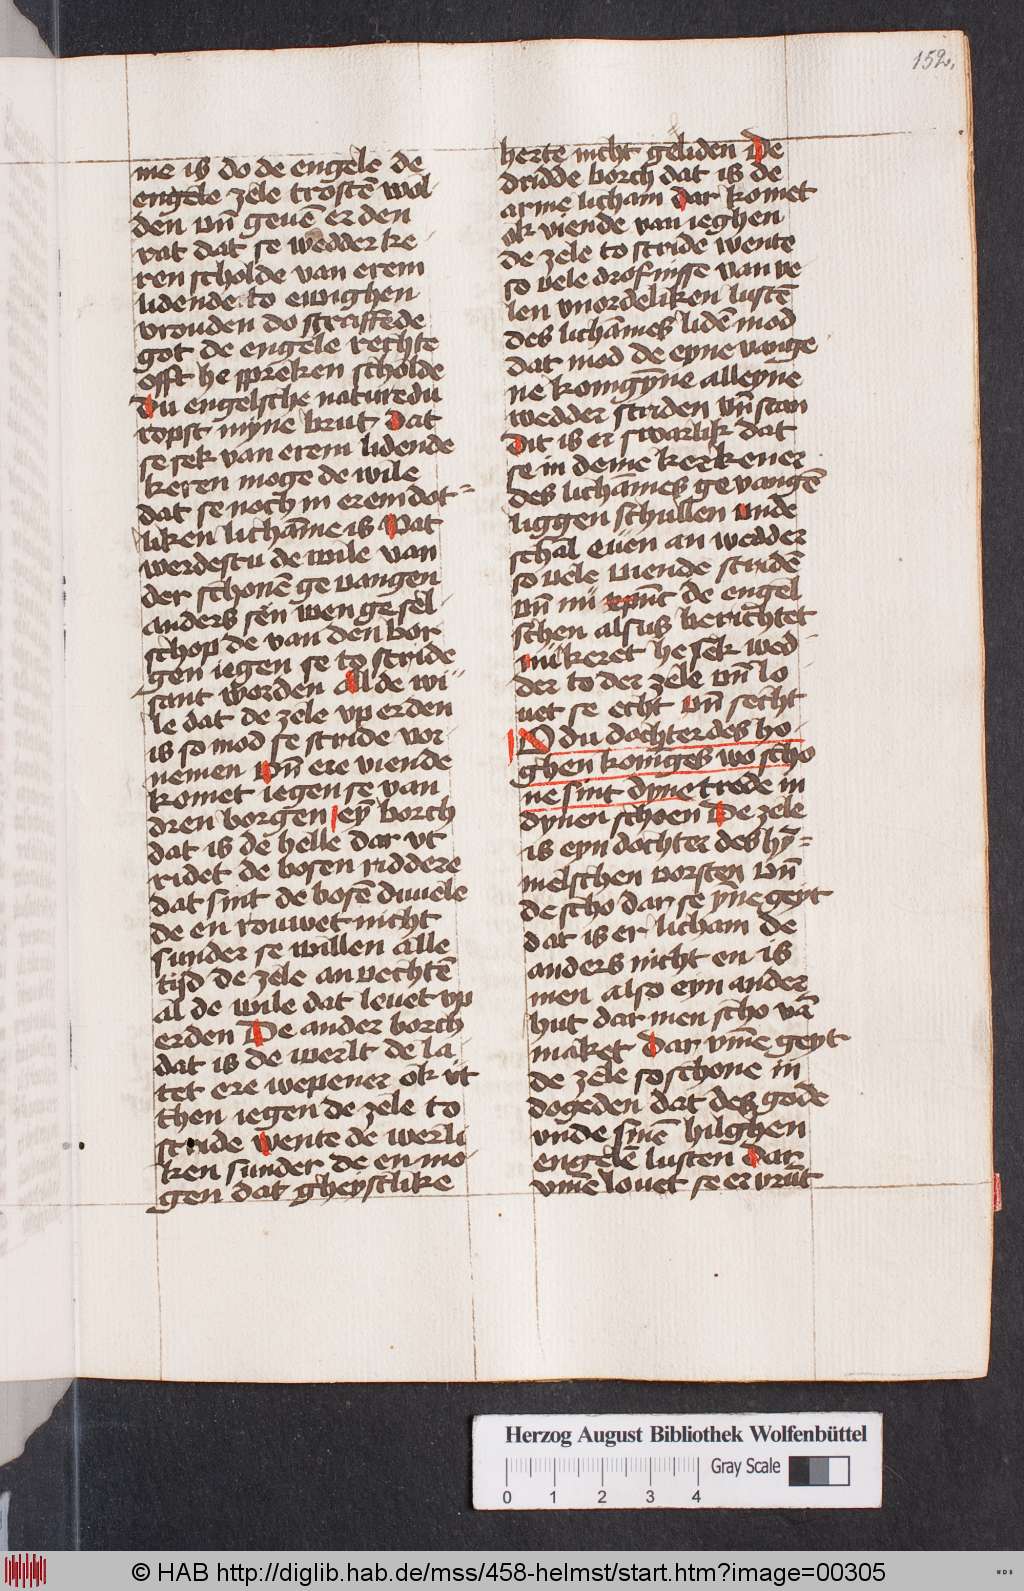 152.
me is do de engele de
engele zele trostē wol
den vn̄ geuē er den
rat dat se wedder ke
ren scholde van erem
lidende to ewighen
vrouden do straffede
got de engele rechte
offt he spreken scholde
Du engelsche nature du
ropst myne brut Dat
se sek van erem lidende
keren moge de wile
dat se noch in erem dot⸗
liken lichāme is Wat
werdestu de wile van
der schonē ge vangen
anders sen wen gesel
schop de van den bor
gen iegen se to stride
sant worden Al de wi⸗
le dat de zele vp erden
is so mod se stride vor
nemen Vn̄ ere viende
komet iegen se van
dren borgen ey̅ borch
dat is de helle dar vt
ridet de bosen riddere
dat sint de bosē duuele
de en rouwet nicht
sunder se willen alle
tijd de zele an vechtē
al de wile dat leuet vp
erden De ander borch
dat is de werlt de la
tet ere wepener ok vt
then iegen de zele to
stride wente de werli
ken sunder de en mo
gen dat gheystlike
herte nicht geliden De
dridde borch dat is de
arme licham dar komet
ok viende van ieghen
de zele to stride wente
so vele drofnisse van ve
len vnordeliken lustē
des lichāmes lidē mod
dat mod de eyne vange
ne konigȳne alleyne
wedder striden vn̄ stan
Dit is er swarlik dat
se in deme kerkener
des lichāmes ge vangē
liggen schullen vnde
schal euen an wedder
so vele viende stridē
vn̄ nu de engel
schen alsus berichtet
nu keret he sek wed
der to der zele vn̄ lo
uet se echt vn̄ secht
O du dochter des ho
ghen koniges wo scho
ne sint dyne trede in
dynen schoen De zele
is eyn dochter des hȳ⸗
melschen vorsten vn̄
de scho dar se ȳne geyt
dat is er licham de
anders nicht en is
men also eyn ander
hut dar men scho vā
maket Dar vm̄e geyt
de zele so schone in
dogeden dat des gode
vnde sinē hilghen
engelē lusten Dar
vm̄e louet se er brūt
Herzog August Bibliothek Wolfenbüttel
Gray Scale
0 1 2 3 4
© HAB http://diglib.hab.de/mss/458-helmst/start.htm?image=00305